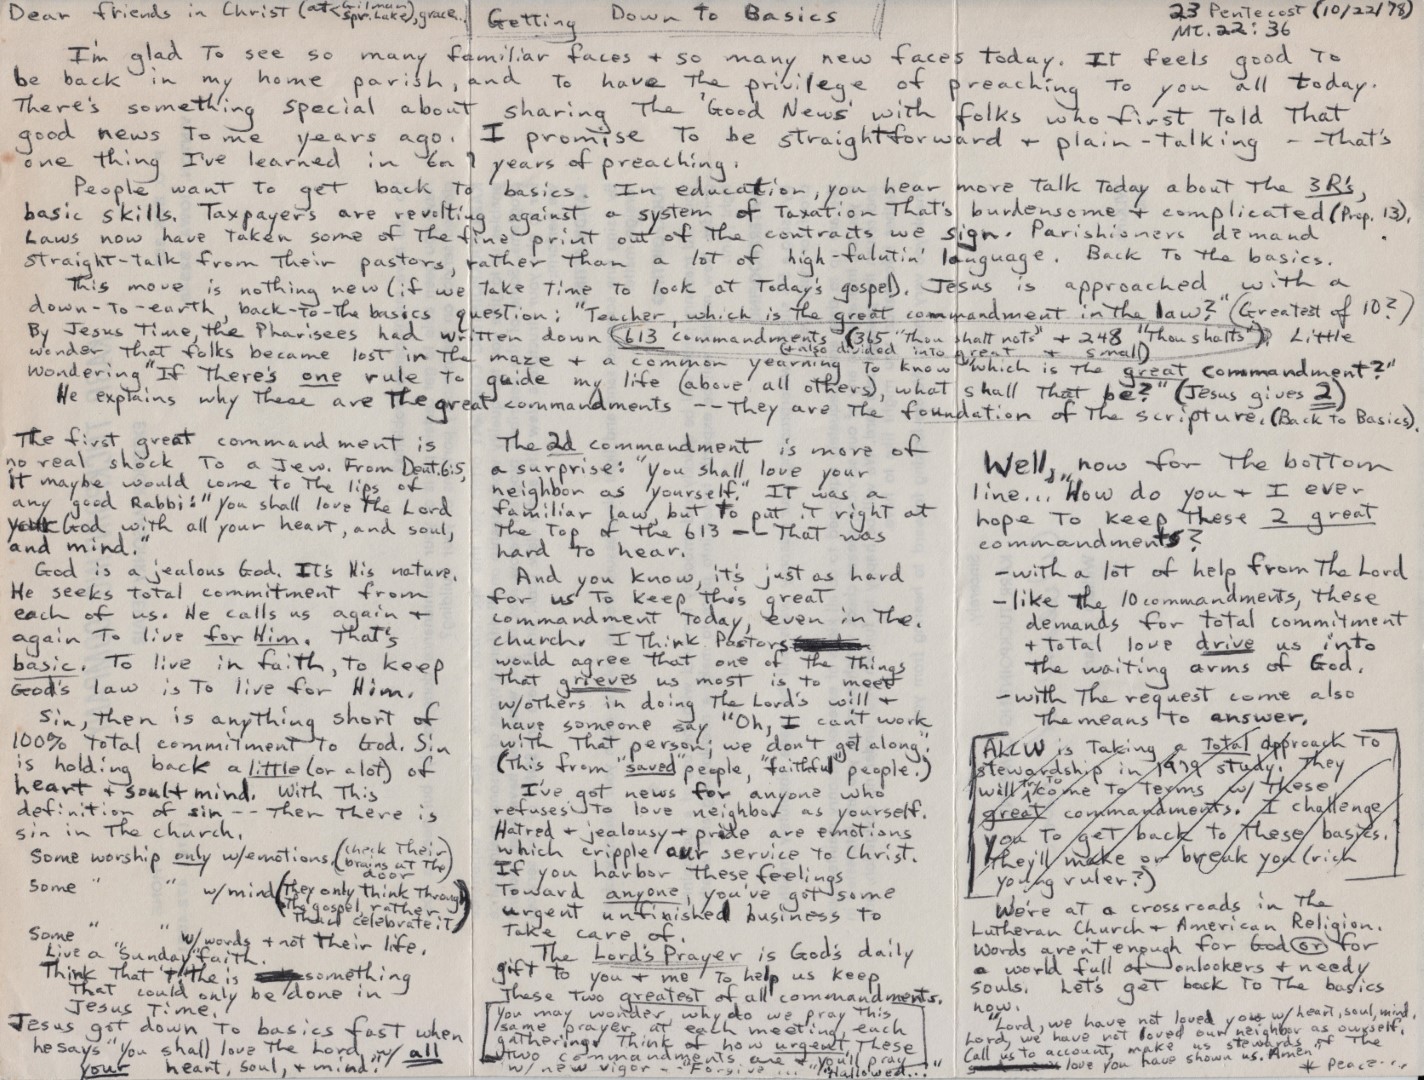 Dear friends in Christ (at < Gilman / Spr. Lake), grace..
Getting Down to Basics
23 Pentecost (10/22/78)
Mt. 22:36
I'm glad to see so many familiar faces + so many new faces today. It feels good to
be back in my home parish, and to have the privilege of preaching to you all today.
There's something special about sharing the 'Good News' with folks who first told that
good news to me years ago. I promise to be straightforward + plain-talking -- that's
one thing I've learned in 6 or 7 years of preaching.
People want to get back to basics. In education, you hear more talk today about the 3R's,
basic skills. Taxpayers are revolting against a system of taxation that's burdensome + complicated (Prop. 13).
Laws now have taken some of the fine print out of the contracts we sign. Parishioners demand
straight-talk from their pastors, rather than a lot of high-falutin' language. Back to the basics.
This move is nothing new (if we take time to look at today's gospel). Jesus is approached with a
down-to-earth, back-to-the basics question: "Teacher, which is the great commandment in the law?" (Greatest of 10?)
By Jesus time, the Pharisees had written down (613 commandments (365 "Thou shalt nots" + 248 "Thou shalts"). Little
(+ also divided into great + small)
wonder that folks became lost in the maze + a common yearning to know "which is the great commandment?"
wondering "If there's one rule to guide my life (above all others), what shall that be?" (Jesus gives 2)
He explains why these are the great commandments -- they are the foundation of the scripture. (Back to Basics).
The first great commandment is
no real shock to a Jew. From Deut. 6:5,
it maybe would come to the lips of
any good Rabbi: "You shall love the Lord
your God with all your heart, and soul,
and mind."
God is a jealous God. It's His nature.
He seeks total commitment from
each of us. He calls us again +
again to live for Him. That's
basic. To live in faith, to keep
God's law is to live for Him.
Sin, then is anything short of
100% total commitment to God. Sin
is holding back a little (or a lot) of
heart + soul + mind. With this
definition of sin -- then there is
sin in the church.
Some worship only w/emotions. (check their brains at the door)
Some " " w/mind (They only think through the gospel rather than celebrate it)
Some " " w/words + not their life.
Live a "Sunday" faith.
Think that tithe is something
that could only be done in
Jesus time.
Jesus got down to basics fast when
he says "You shall love the Lord, w/ all
your heart, soul, + mind."
The 2d commandment is more of
a surprise: "You shall love your
neighbor as yourself." It was a
familiar law, but to put it right at
the top of the 613 -- that was
hard to hear.
And you know, it's just as hard
for us to keep this great
commandment today, even in the
church. I think Pastors
would agree that one of the things
that grieves us most is to meet
w/others in doing the Lord's will +
have someone say "Oh, I can't work
with that person; we don't get along."
(This from "saved" people, "faithful" people.)
I've got news for anyone who
refuses to love neighbor as yourself.
Hatred + jealousy + pride are emotions
which cripple our service to Christ.
If you harbor these feelings
toward anyone, you've got some
urgent unfinished business to
take care of.
The Lord's Prayer is God's daily
gift to you + me to help us keep
these two greatest of all commandments.
You may wonder, why do we pray this
same prayer at each meeting, each
gathering? Think of how urgent these
two commandments are + you'll pray
w/ new vigor - "Forgive ..." "Hallowed..."
Well, now for the bottom
line... "How do you + I ever
hope to keep these 2 great
commandments?
- with a lot of help from the Lord
- like the 10 commandments, these
demands for total commitment
+ total love drive us into
the waiting arms of God.
- with the request come also
the means to answer.
ALCW is taking a total approach to
stewardship in 1979 study. They
will come to terms w/ these
great commandments. I challenge
you to get back to these basics.
They'll make or break you (rich
young ruler?)
We're at a crossroads in the
Lutheran Church + American Religion.
Words aren't enough for God or for
a world full of onlookers + needy
souls. Let's get back to the basics
now.
"Lord, we have not loved you w/ heart, soul, mind.
Lord, we have not loved our neighbor as ourself.
Call us to account, make us stewards of the
love you have shown us. Amen"
* Peace...